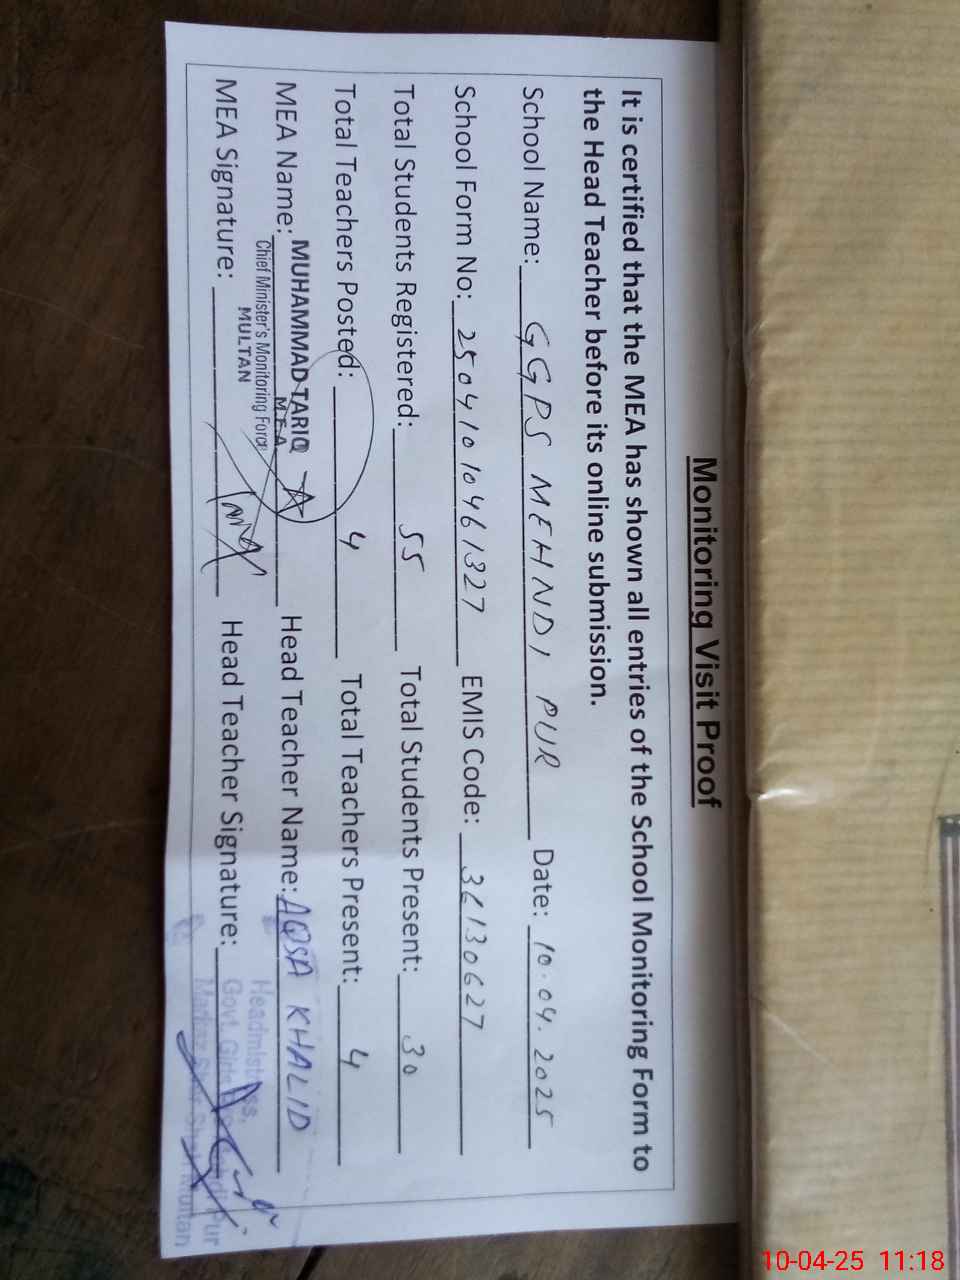 Monitoring Visit Proof
It is certified that the MEA has shown all entries of the School Monitoring Form to
the Head Teacher before its online submission.
School Name: GGPS MEHNDI PUR Date: 10.04.2025
School Form No: 25041010461327 EMIS Code: 36130627
Total Students Registered: 55 Total Students Present: 30
Total Teachers Posted: 4 Total Teachers Present: 4
MEA Name: MUHAMMAD TARIQ Head Teacher Name: AQSA KHALID
M.E.A
Chief Minister's Monitoring Force
MULTAN
MEA Signature: Head Teacher Signature:
Headmistress,
Govt. Girls Pur
Markaz Multan
10-04-25 11:18